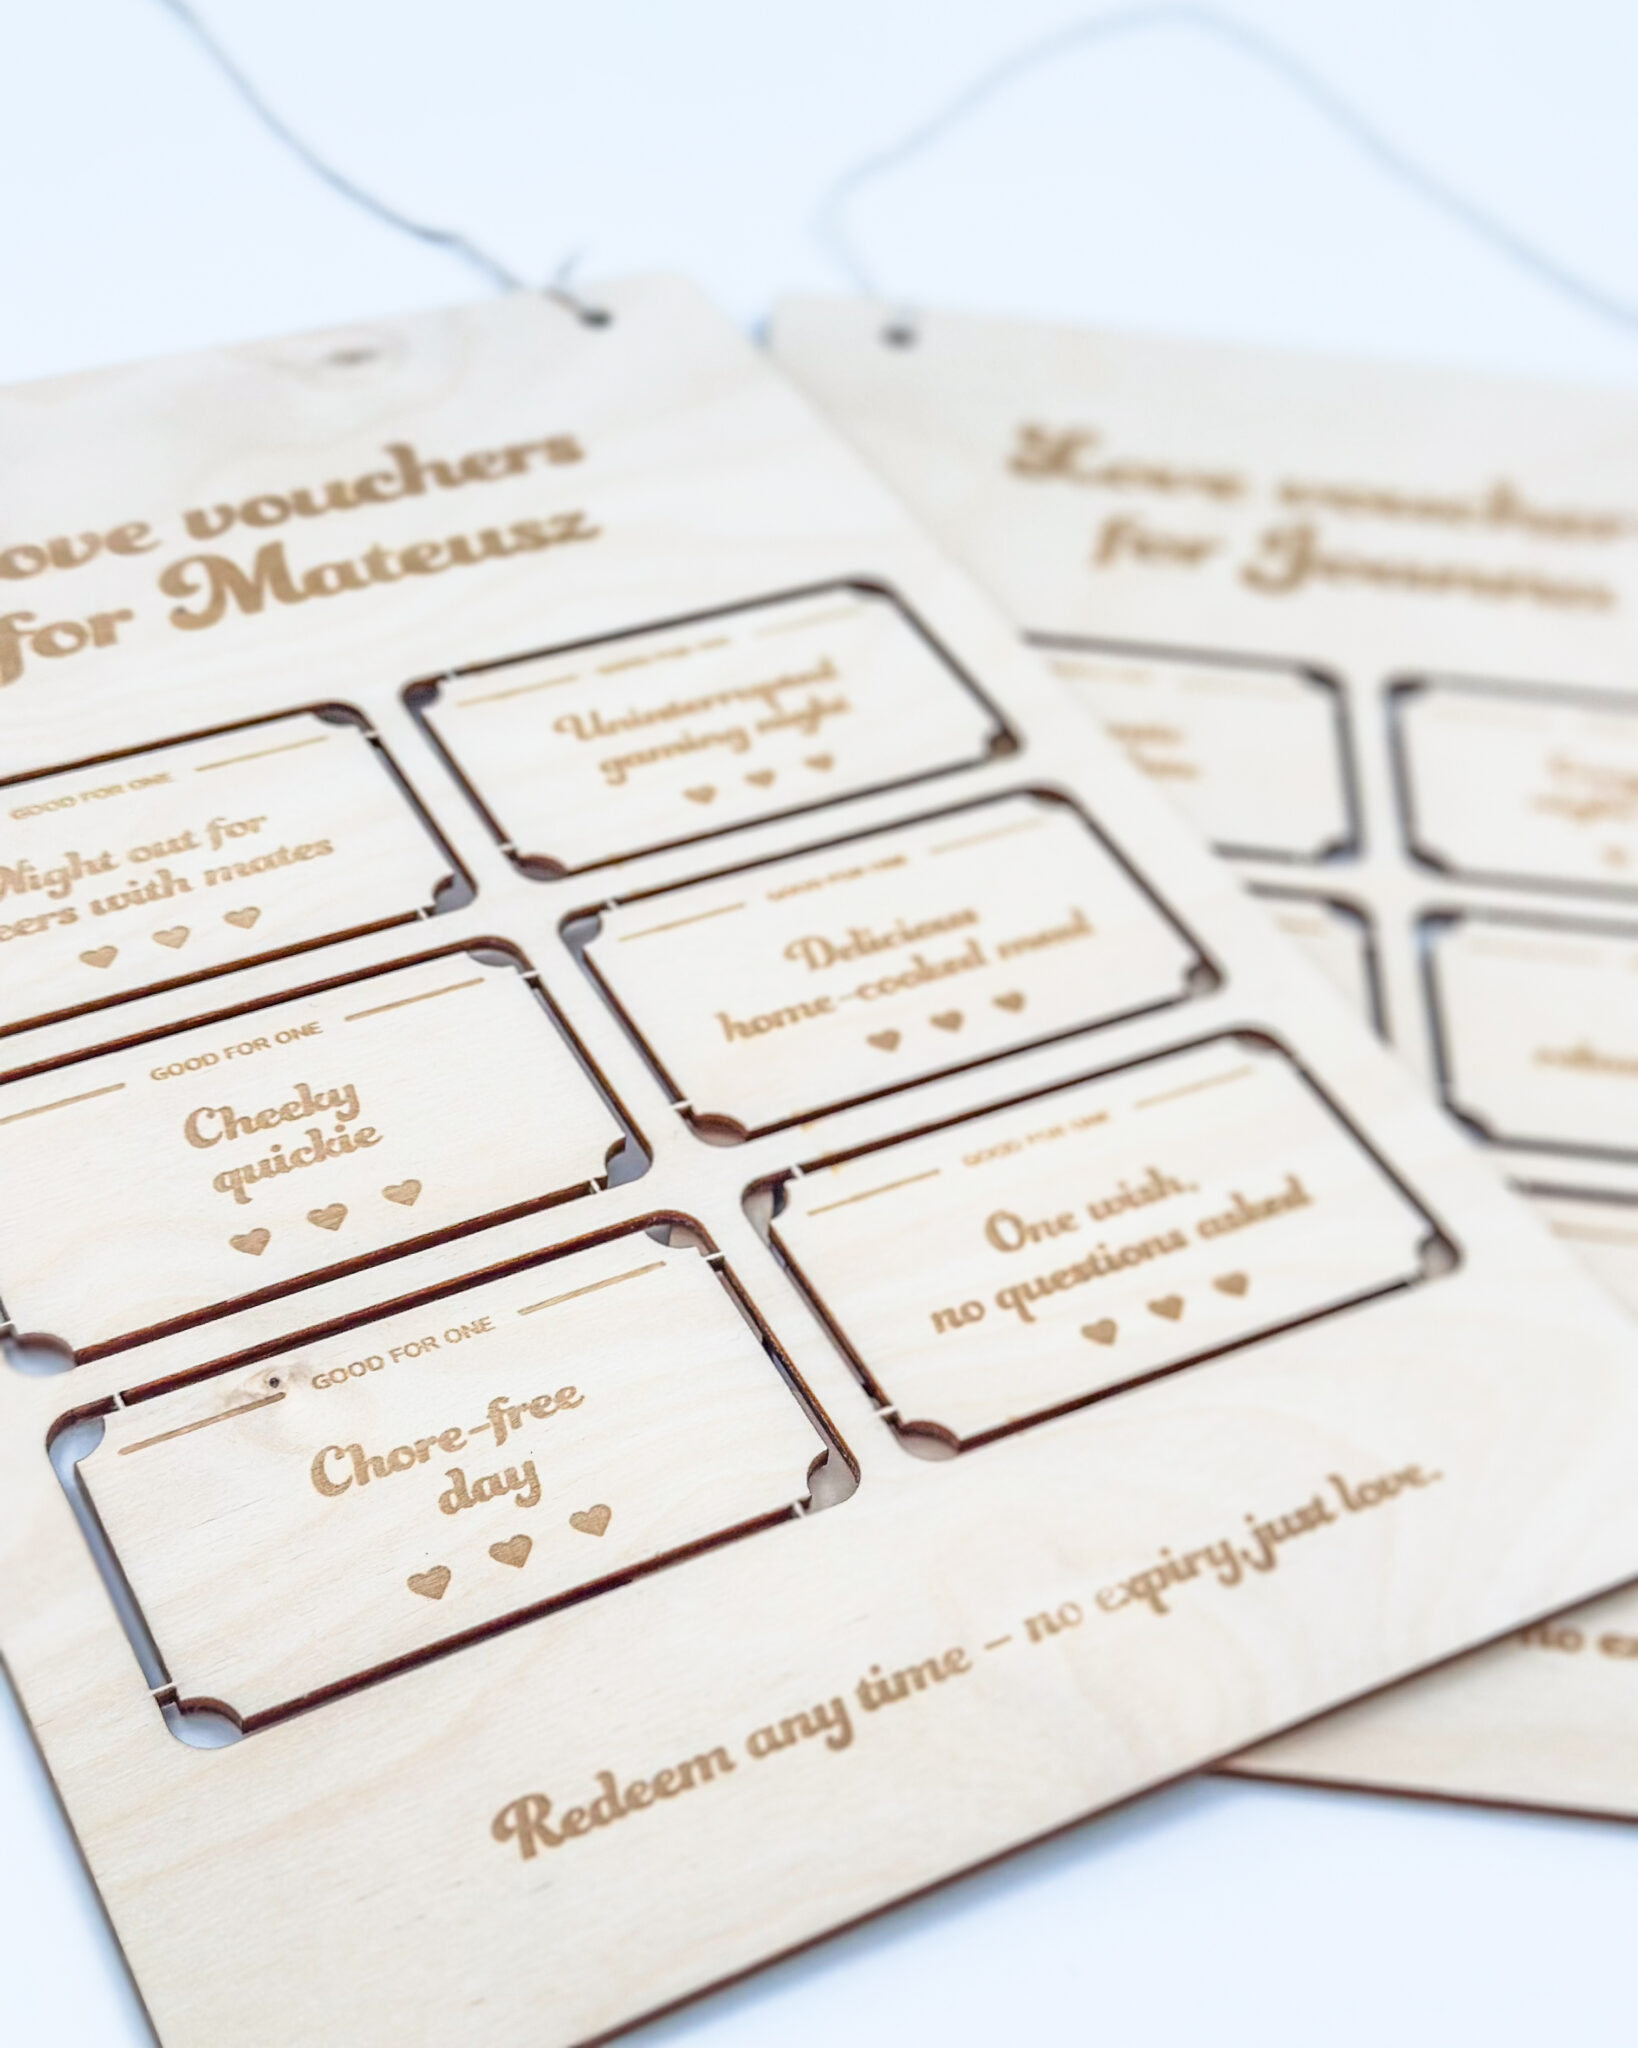 ove vouchers
for Mateusz
GOOD FOR ONE
Night out for
eers with mates
GOOD FOR ONE
Uninterrupted
gaming night
GOOD FOR ONE
Cheeky
quickie
GOOD FOR ONE
Delicious
home-cooked meal
GOOD FOR ONE
Chore-free
day
GOOD FOR ONE
One wish,
no questions asked
Redeem any time – no expiry, just love.
Love voucher
for
no ex